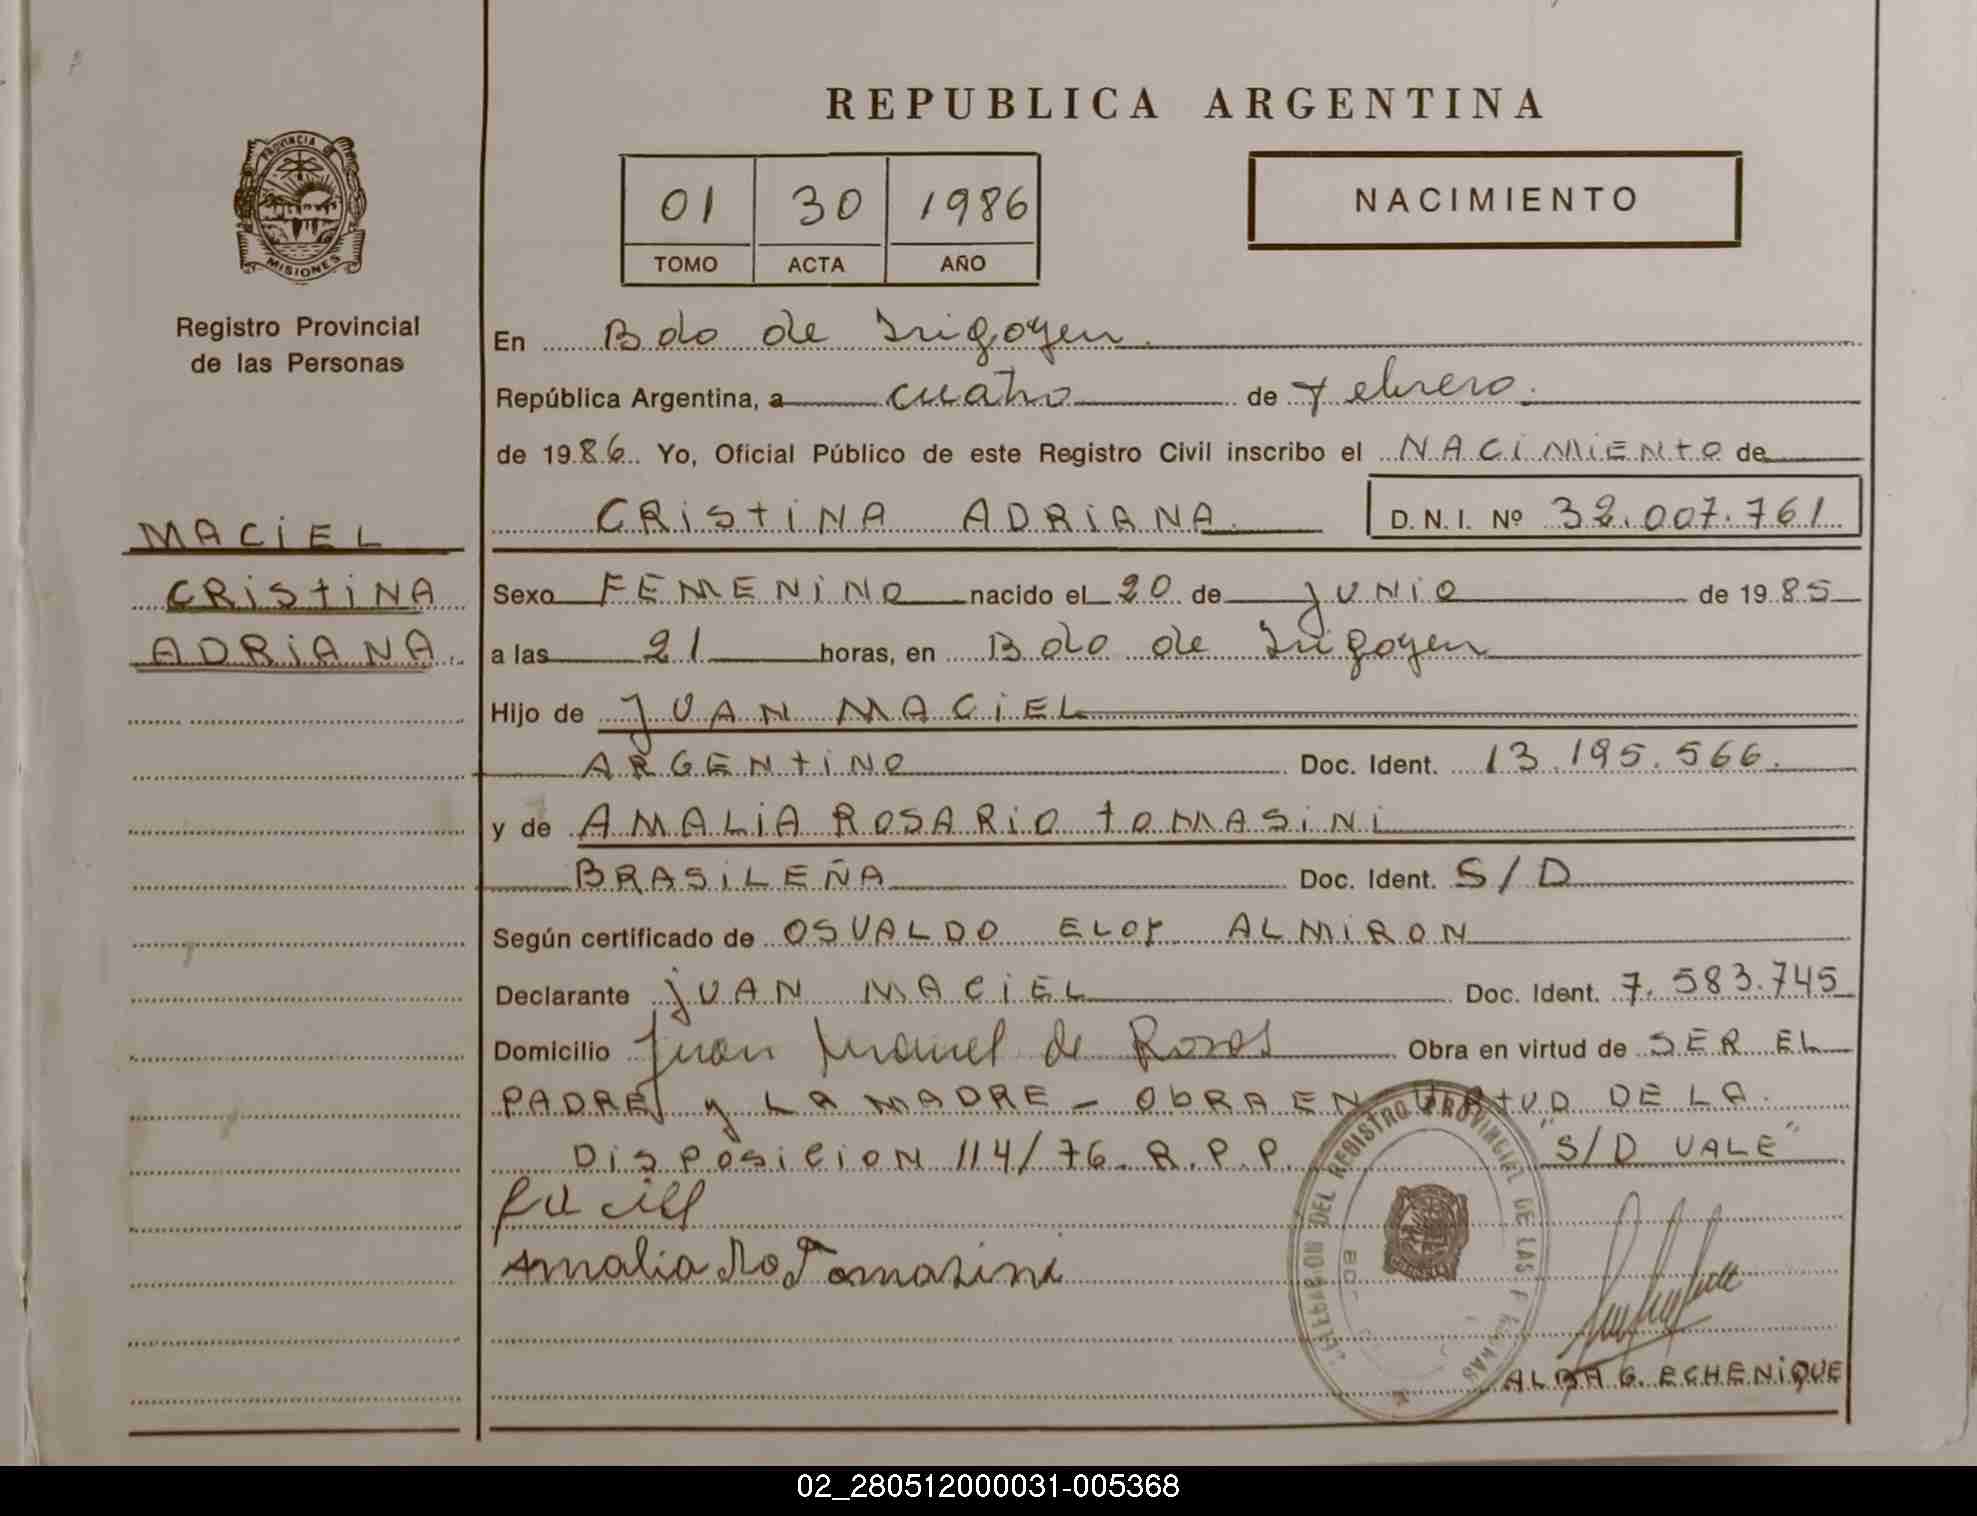 REPUBLICA ARGENTINA
PROVINCIA DE
MISIONES
Registro Provincial
de las Personas
01 30 1986
TOMO ACTA AÑO
NACIMIENTO
En Bdo de Irigoyen.
República Argentina, a cuatro de Febrero.
de 1986. Yo, Oficial Público de este Registro Civil inscribo el NACIMIENTO de
CRISTINA ADRIANA. D.N.I. Nº 32.007.761
MACIEL
CRISTINA
ADRIANA.
Sexo FEMENINO nacido el 20 de JUNIO de 1985
a las 21 horas, en Bdo de Irigoyen
Hijo de JUAN MACIEL
ARGENTINO Doc. Ident. 13.195.566.
y de AMALIA ROSARIO TOMASINI
BRASILEÑA Doc. Ident. S/D
Según certificado de OSVALDO ELOY ALMIRON
Declarante JUAN MACIEL Doc. Ident. 7.583.745
Domicilio Juan Manuel de Rosas Obra en virtud de SER EL
PADRE y LA MADRE - OBRA EN VIRTUD DE LA
DISPOSICION 114/76 R.P.P. "S/D VALE"
Amalia Ro Tomasini
DEL REGISTRO PROVINCIAL DE LAS
ALBA G. ECHENIQUE
02_280512000031-005368